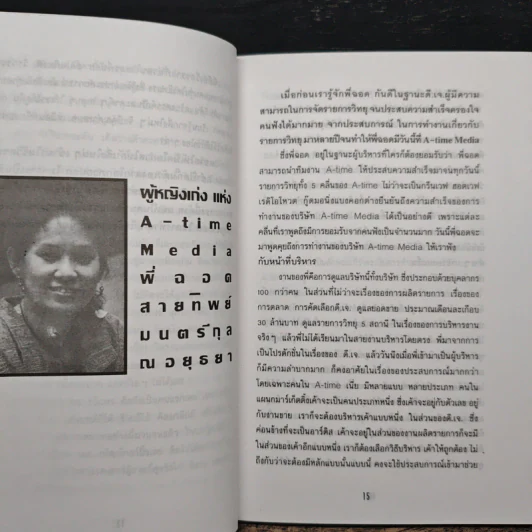 ผู้หญิงเก่ง แห่ง
A-time
Media
พี่ฉอด
สายทิพย์
มนตรีกุล
ณ อยุธยา
เมื่อก่อนเรารู้จักพี่ฉอด กันดีในฐานะดี.เจ.ผู้มีความ
สามารถในการจัดรายการวิทยุ จนประสบความสำเร็จครองใจ
คนฟังได้มากมาย จากประสบการณ์ ในการทำงานเกี่ยวกับ
รายการวิทยุ มาหลายปีจนทำให้พี่ฉอดมีวันนี้ที่ A-time Media
ซึ่งพี่ฉอด อยู่ในฐานะผู้บริหารที่ใครก็ต้องยอมรับว่า พี่ฉอด
สามารถนำทีมงาน A-time ให้ประสบความสำเร็จมาจนทุกวันนี้
รายการวิทยุทั้ง 5 คลื่นของ A-time ไม่ว่าจะเป็นกรีนเวฟ ฮอตเวฟ
เรดิโอโหวต กู๊ดมอนิ่งแบงคอกต่างยืนยันถึงความสำเร็จของการ
ทำงานของบริษัท A-time Media ได้เป็นอย่างดี เพราะแต่ละ
คลื่นที่เราพูดถึงมีการยอมรับจากคนฟังเป็นจำนวนมาก วันนี้พี่ฉอดจะ
มาพูดคุยถึงการทำงานของบริษัท A-time Media ให้เราฟัง
กับหน้าที่บริหาร
งานของพี่คือการดูแลบริษัทนี้ทั้งบริษัท ซึ่งประกอบด้วยบุคลากร
100 กว่าคน ในส่วนที่ไม่ว่าจะเรื่องของการผลิตรายการ เรื่องของ
การตลาด การคัดเลือกดี.เจ. ดูแลยอดขาย ประมาณเดือนละเกือบ
30 ล้านบาท ดูแลรายการวิทยุ 5 สถานี ในเรื่องของการบริหารงาน
จริงๆ แล้วพี่ไม่ได้เรียนมาในสายงานบริหารโดยตรง พี่มาจากการ
เป็นโปรดักชั่นในเรื่องของ ดี.เจ. แล้ววันนึงเมื่อพี่เข้ามาเป็นผู้บริหาร
ก็มีความลำบากมาก ก็คงอาศัยในเรื่องของประสบการณ์มากกว่า
โดยเฉพาะคนใน A-time เนี่ย มีหลายแบบ หลายประเภท คนใน
แผนกมาร์เก็ตติ้งเค้าจะเป็นคนประเภทหนึ่ง ซึ่งเค้าจะอยู่กับตัวเลข อยู่
กับงานขาย เราก็จะต้องบริหารเค้าแบบหนึ่ง ในส่วนของดี.เจ. ซึ่ง
ค่อนข้างที่จะเป็นอาร์ติส เค้าจะอยู่ในส่วนของงานผลิตรายการก็จะมี
ในส่วนของเค้าอีกแบบหนึ่ง เราก็ต้องเลือกวิธีบริหาร เค้าให้ถูกต้อง ไม่
ถึงกับว่าจะต้องมีหลักแบบนั้นแบบนี้ คงจะใช้ประสบการณ์เข้ามาช่วย
15